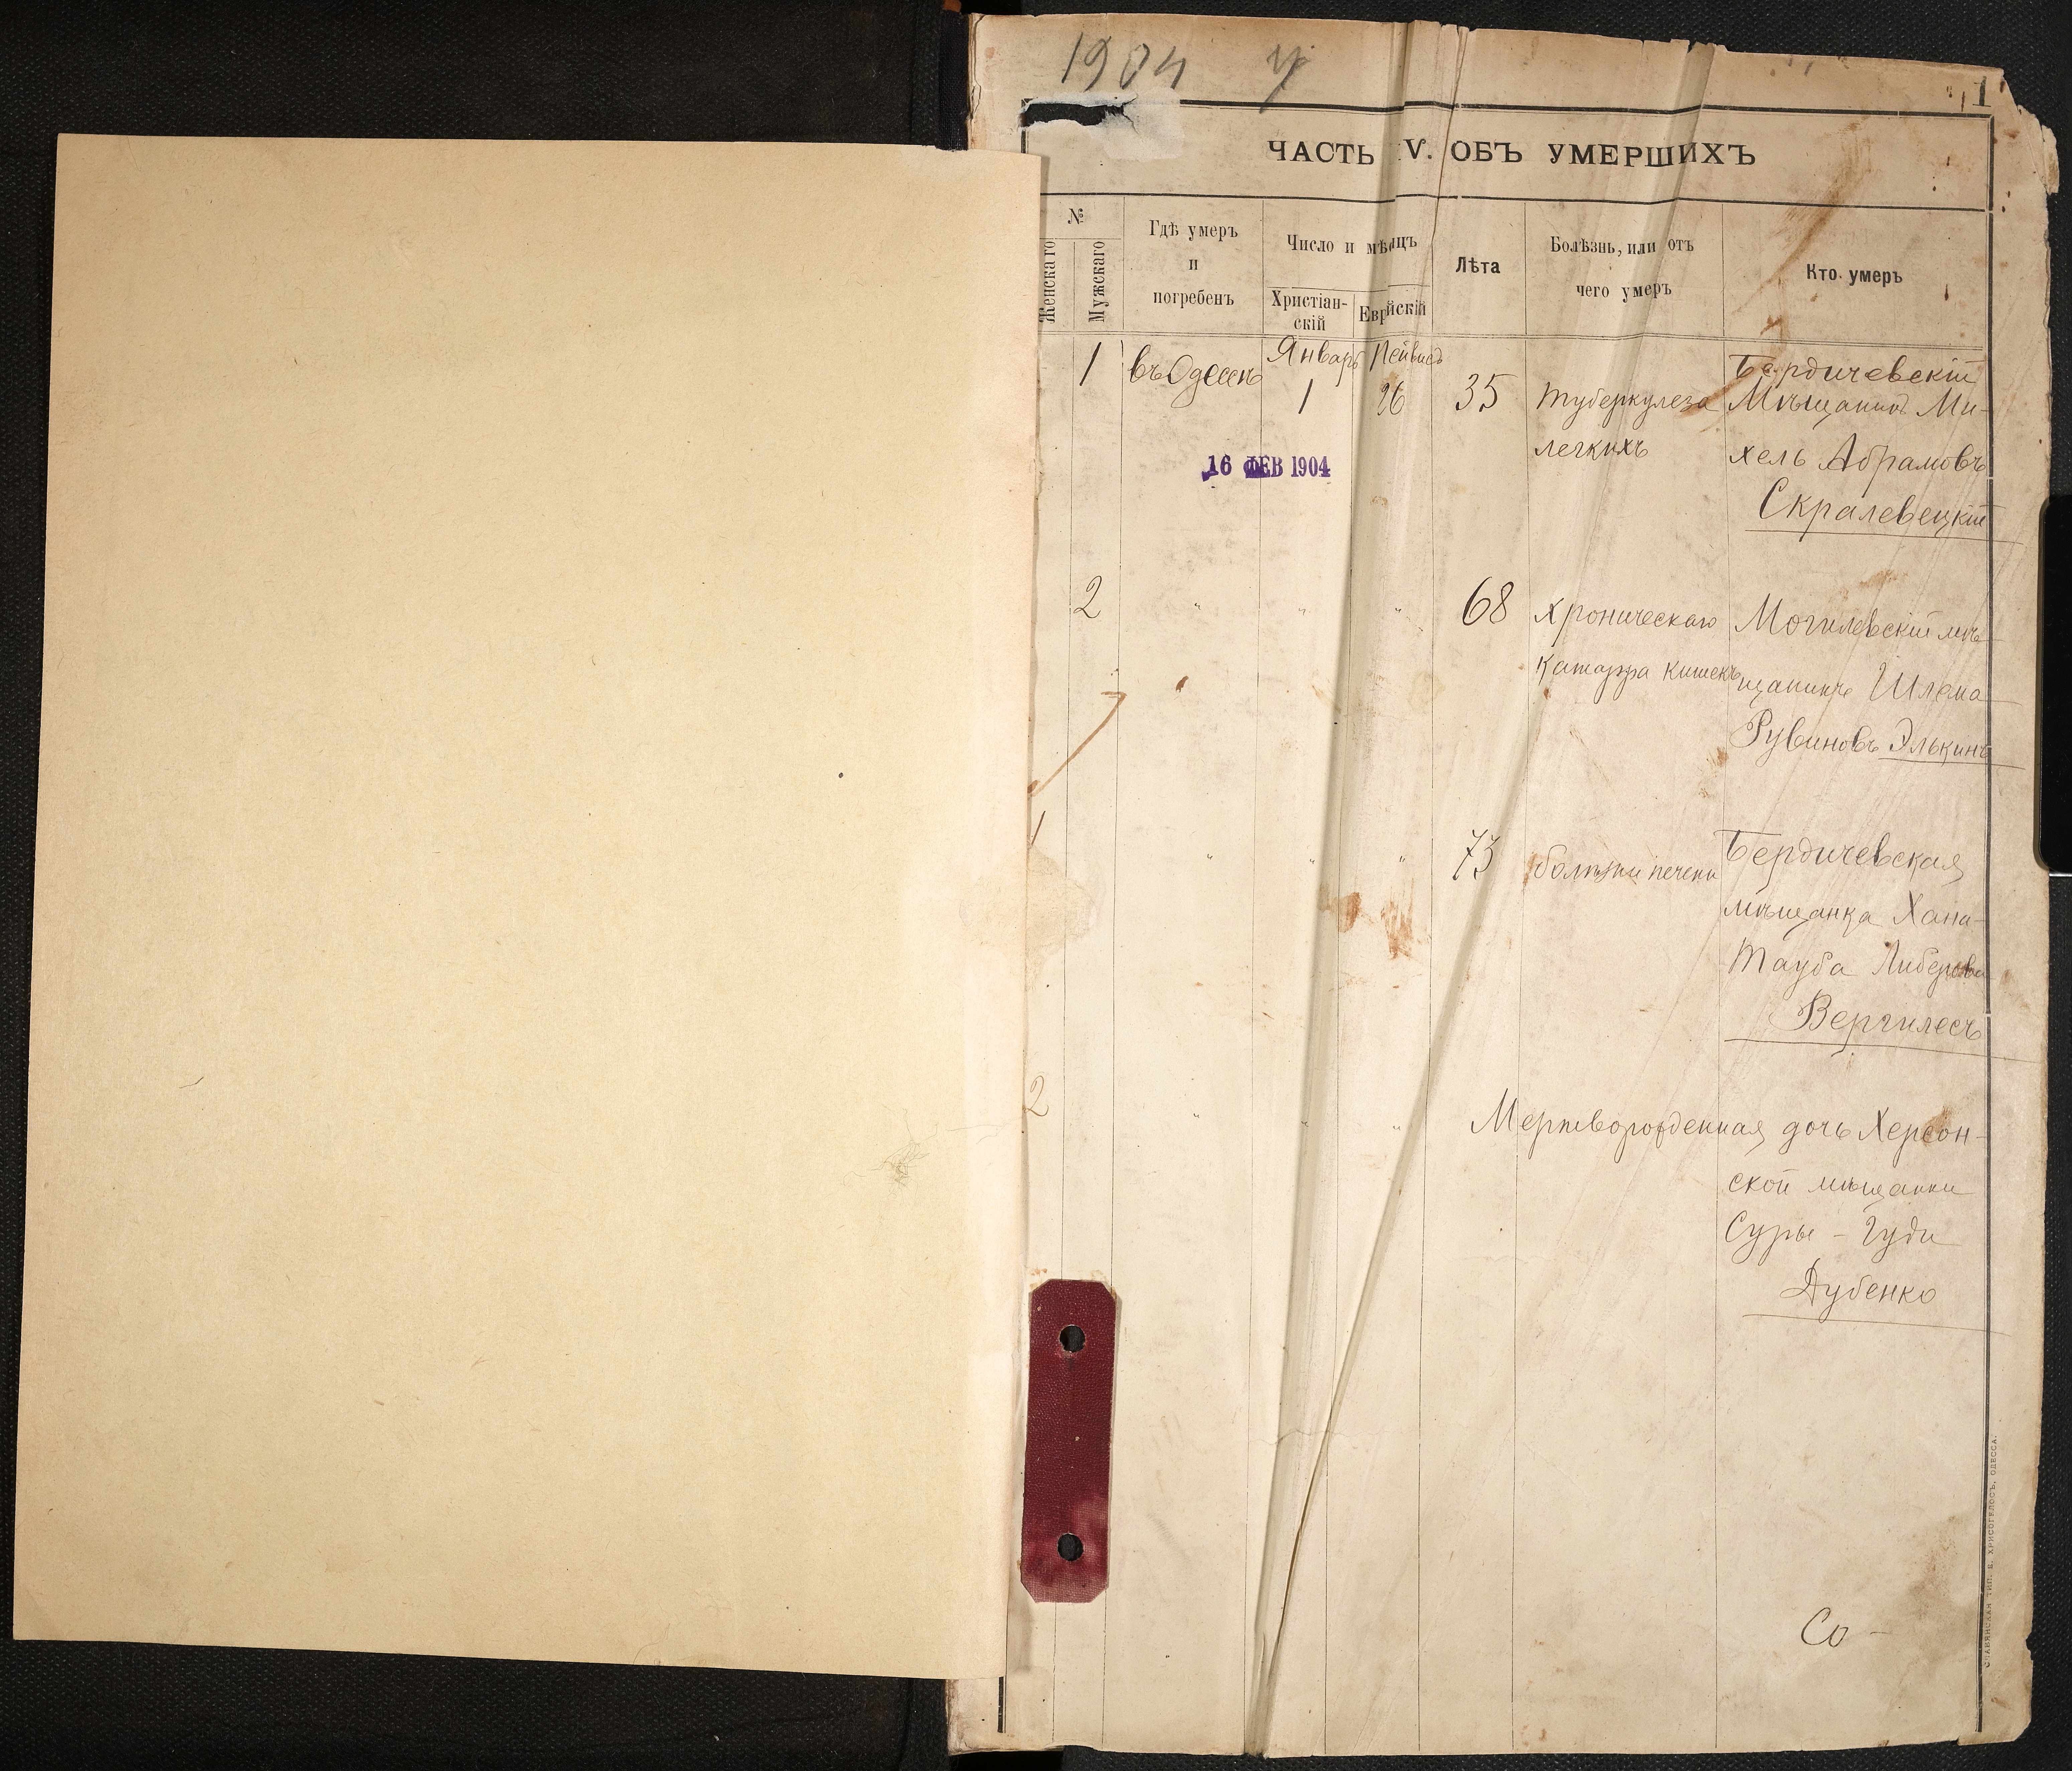 1904 У
1
ЧАСТЬ IV. ОБЪ УМЕРШИХЪ
№
Женскаго
Мужскаго
Гдѣ умеръ
и
погребенъ
Число и мѣсяцъ
Христіан-
скій
Еврейскій
Лѣта
Болѣзнь, или отъ
чего умеръ
Кто умеръ
1 въ Одессѣ Январь Тейвисъ
1 26 35 туберкулеза
легкихъ
Бердичевскій
Мѣщанинъ Ми-
хель Абрамовъ
Скралевецкій
16 ФЕВ 1904
2 " " " 68 хроническаго
катарра кишекъ
Могилевскій мѣ-
щанинъ Шлема
Рувиновъ Элькинъ
1 " " " 73 болѣзни печени
Бердичевская
мѣщанка Хана-
Тауба Либерова
Вергилесъ
2 " " " Мертворожденная дочь Херсон-
ской мѣщанки
Суры - Гуди
Дубенко
Со-
СЛАВЯНСКАЯ ТИП. Е. ХРИСОГЕЛОСЪ, ОДЕССА.